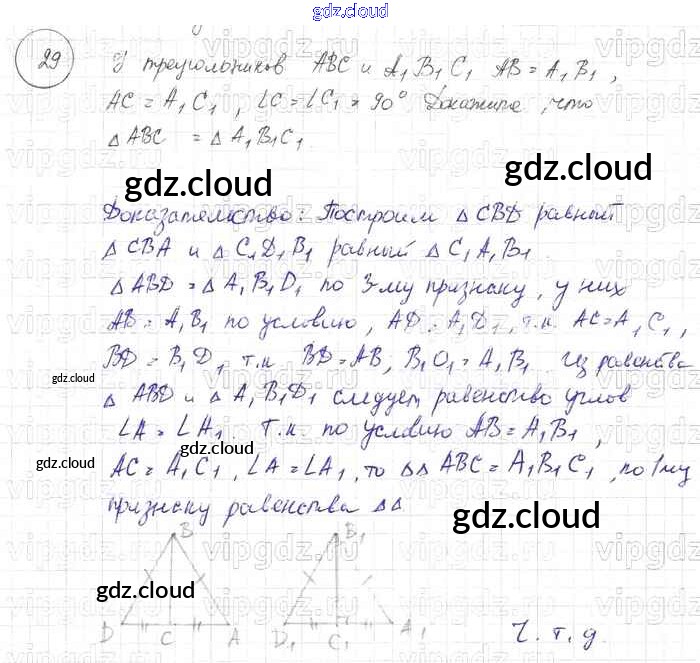 gdz.cloud
29
У треугольников ABC и A₁B₁C₁ AB = A₁B₁,
AC = A₁C₁, ∠C = ∠C₁ = 90° Докажите, что
△ ABC = △ A₁B₁C₁.
gdz.cloud
gdz.cloud
Доказательство: Построим △ CBD равный
△ CBA и △ C₁D₁B₁ равный △ C₁A₁B₁.
△ ABD = △ A₁B₁D₁ по 3-му признаку, у них
AB = A₁B₁ по условию, AD = A₁D₁, т.к. AC = A₁C₁,
BD = B₁D₁ т.к. BD = AB, B₁D₁ = A₁B₁. Из равенства
gdz.cloud
△ ABD и △ A₁B₁D₁ следует равенство углов
∠A = ∠A₁. Т.к. по условию AB = A₁B₁,
gdz.cloud
gdz.cloud
AC = A₁C₁, ∠A = ∠A₁, то △△ ABC = A₁B₁C₁, по 1му
признаку равенства △△
gdz.cloud
B B₁
gdz.cloud
D C A D₁ C₁ A₁
Ч.т.д.